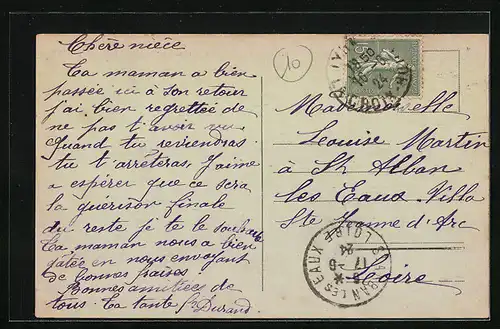 Chère nièce
10
Ta maman a bien
passée ici à son retour
j'ai bien regrettée de
ne pas t'avoir vu
Quand tu reviendras
tu t'arrêtras. J'aime
a espérer que ce sera
la guérison finale
du reste je te le souhaite
Ta maman nous a bien
gâtée en nous envoyant
de bonnes fraises
Bonnes amitiées de
tous. Ta tante Durand
Mademoiselle
Louise Martin
à St Alban
les Eaux. Villa
Ste Jeanne d'Arc
Loire
ST ALBAN LES EAUX
LOIRE
17 - 6
24